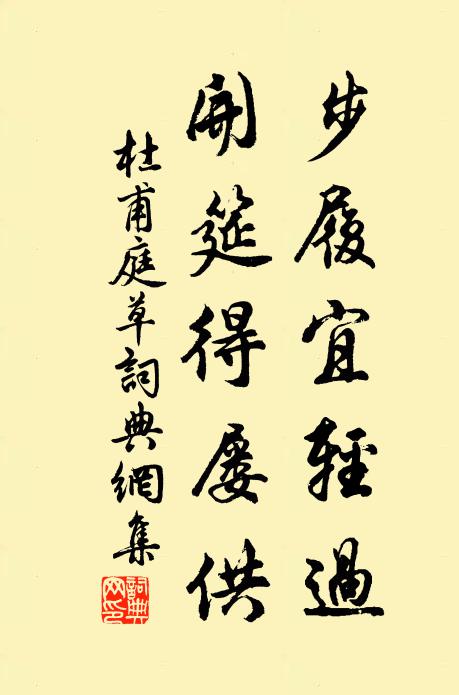 步履宜輕過
開筵得屢供
杜甫庭草詞典網集
詞典網印